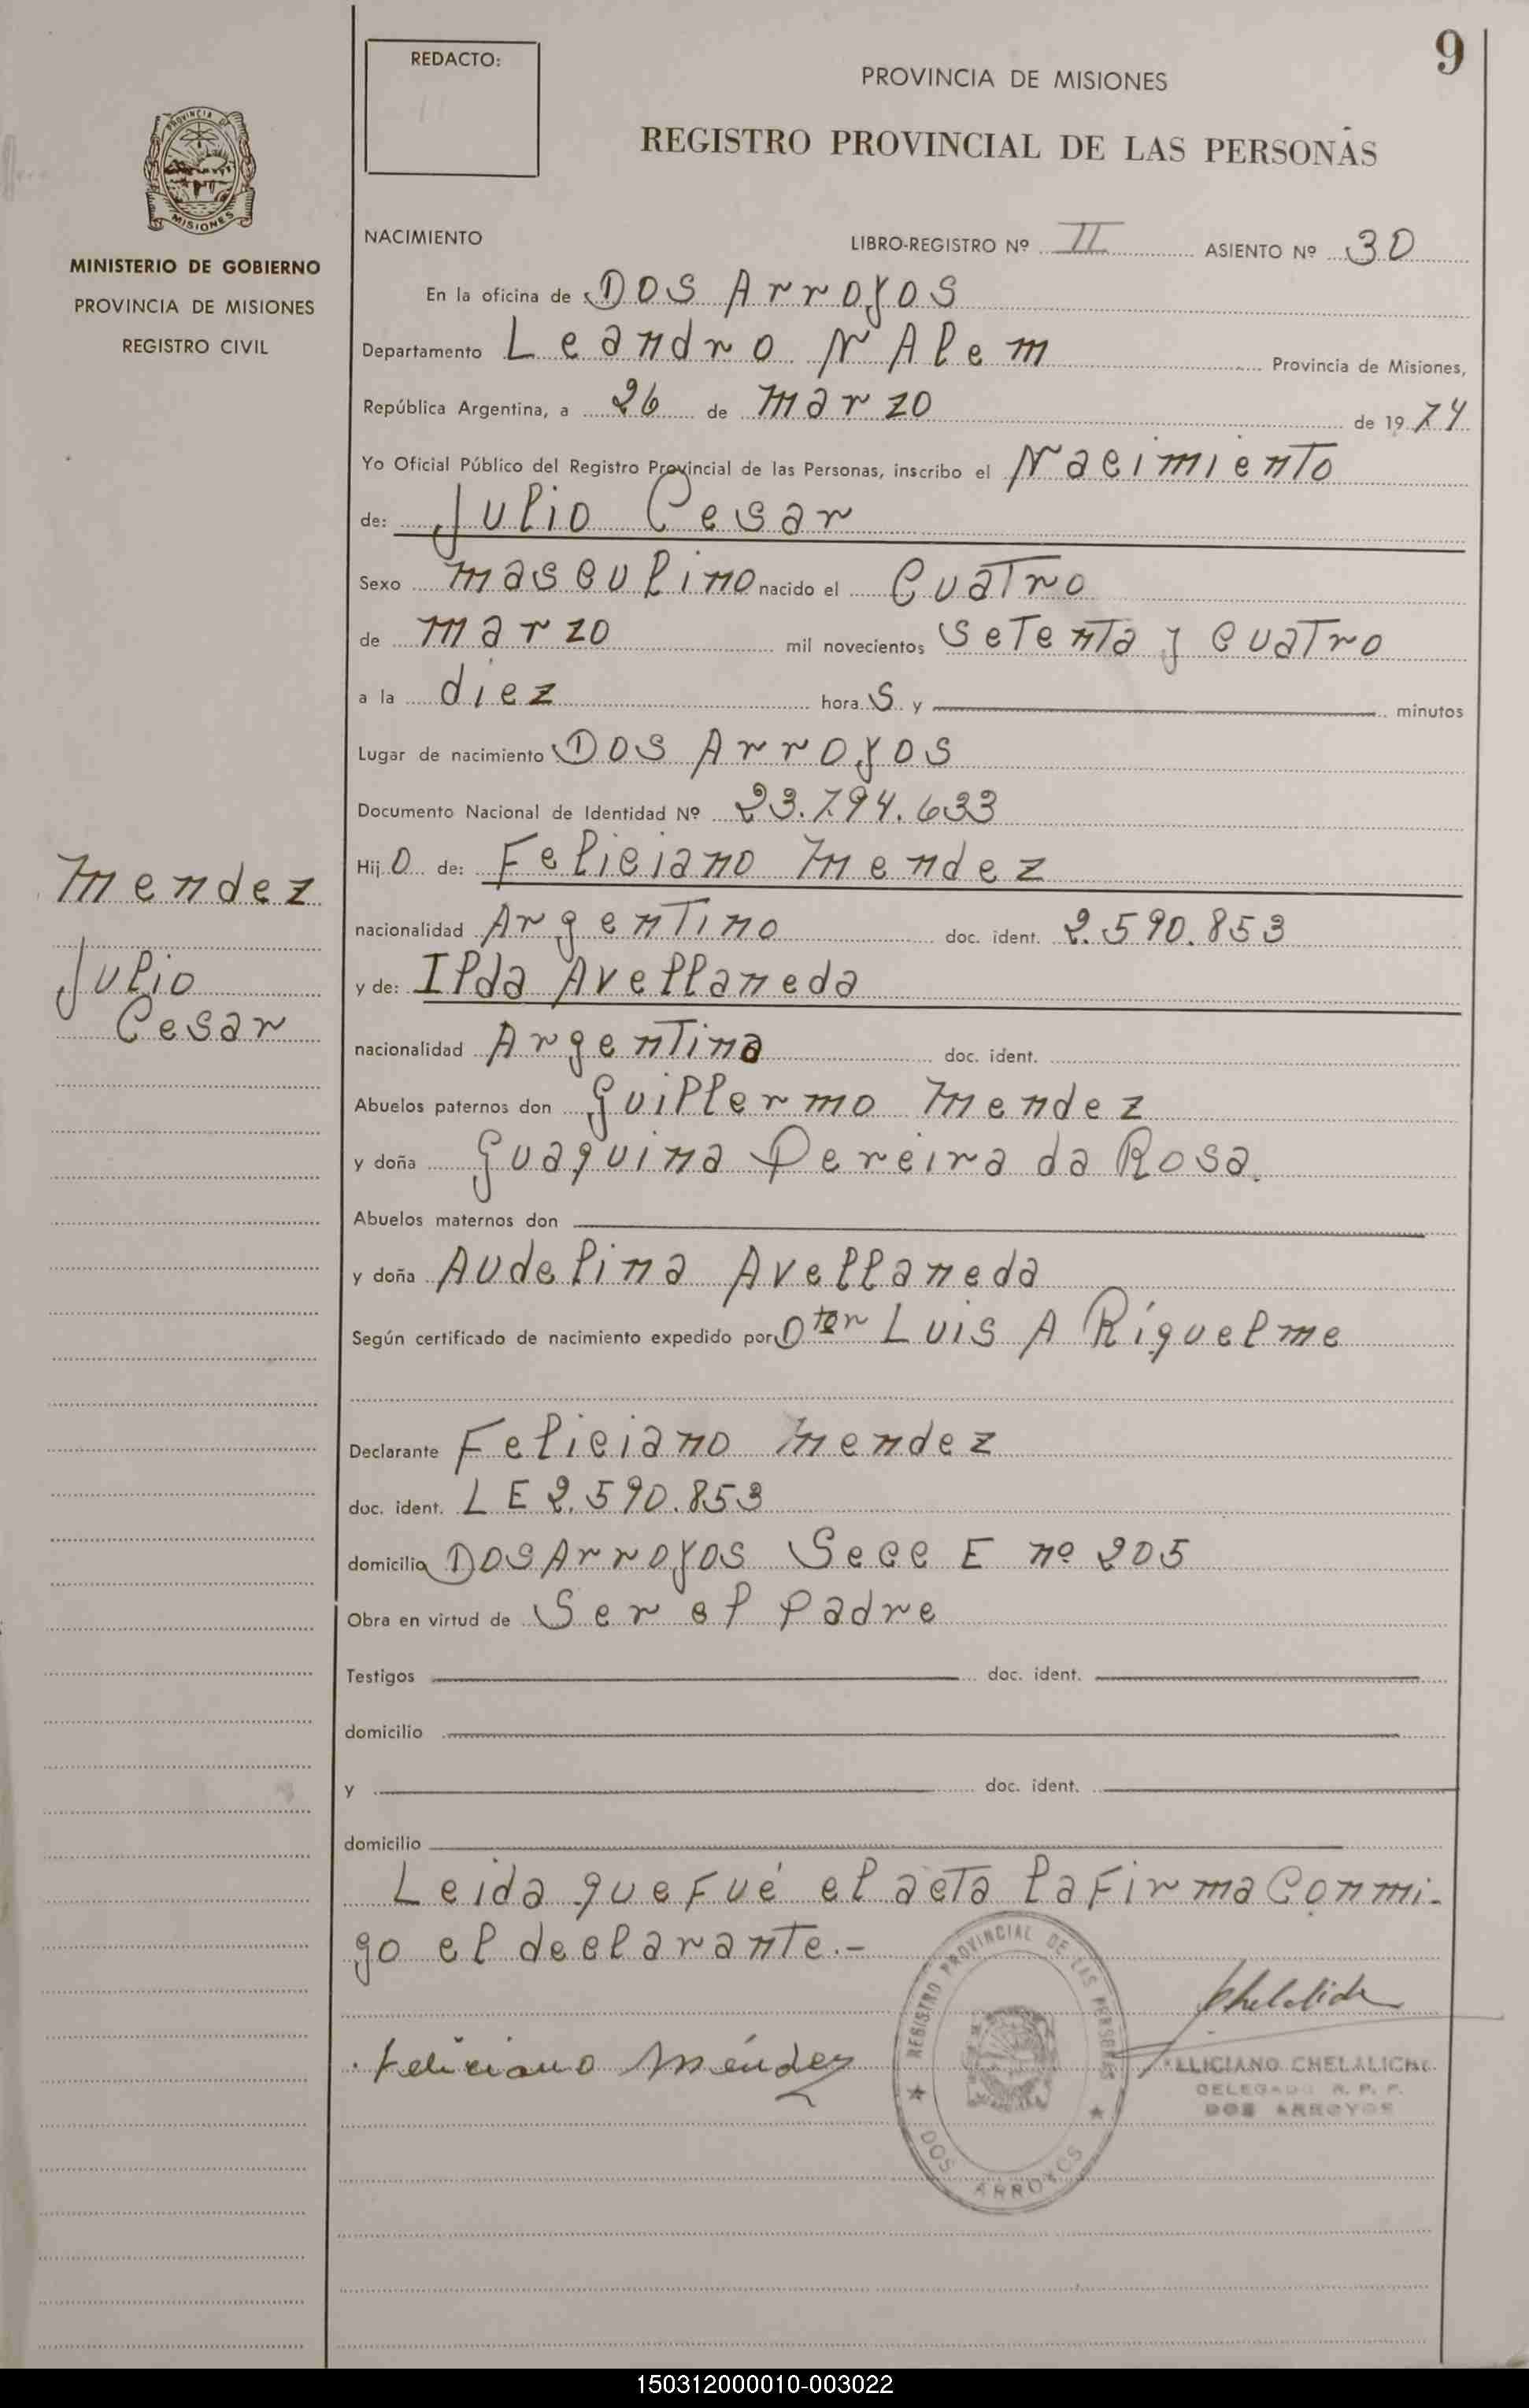 9
REDACTO:
PROVINCIA DE MISIONES
REGISTRO PROVINCIAL DE LAS PERSONAS
PROVINCIA DE
MISIONES
MINISTERIO DE GOBIERNO
PROVINCIA DE MISIONES
REGISTRO CIVIL
NACIMIENTO
LIBRO-REGISTRO Nº II ASIENTO Nº 30
En la oficina de DOS Arroyos
Departamento Leandro N Alem Provincia de Misiones,
República Argentina, a 26 de marzo de 1974
Yo Oficial Público del Registro Provincial de las Personas, inscribo el Nacimiento
de: Julio Cesar
Sexo masculino nacido el Cuatro
de marzo mil novecientos setenta y cuatro
a la diez hora s y minutos
Lugar de nacimiento DOS Arroyos
Documento Nacional de Identidad Nº 23.794.633
Hij o de: Feliciano Mendez
nacionalidad Argentino doc. ident. 2.590.853
y de: Ilda Avellaneda
nacionalidad Argentina doc. ident.
Abuelos paternos don Guillermo Mendez
y doña Guaquina Pereira da Rosa.
Abuelos maternos don
y doña Audelina Avellaneda
Según certificado de nacimiento expedido por Luis A Riquelme
Declarante Feliciano Mendez
doc. ident. L E 2.590.853
domicilio DOS Arroyos Secc E nº 205
Obra en virtud de Ser el padre
Testigos doc. ident.
domicilio
y doc. ident.
domicilio
Leida que fué el acta la firma conmi-
go el declarante.-
Mendez
Julio
Cesar
Feliciano Méndez
REGISTRO PROVINCIAL DE LAS PERSONAS
DOS ARROYOS
CHELALICHE
DELEGADO R. P. P.
DOS ARROYOS
150312000010-003022